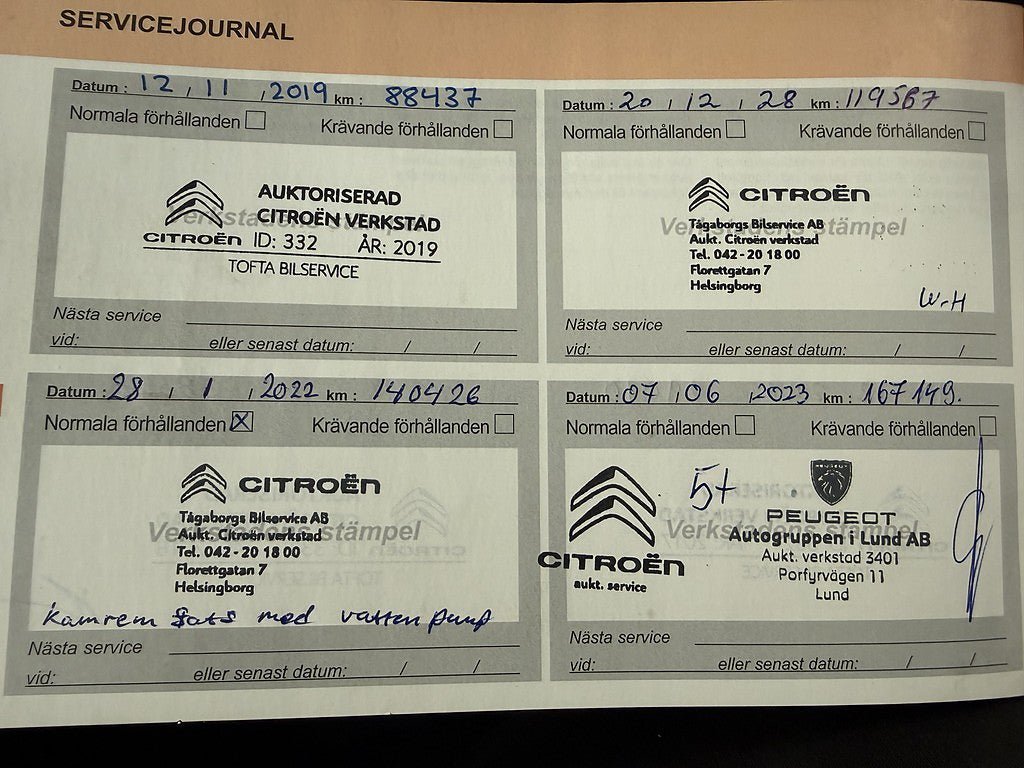 SERVICEJOURNAL
Datum : 12 , 11 , 2019 km : 88437
Normala förhållanden Krävande förhållanden
Verkstadens stämpel
AUKTORISERAD
CITROËN VERKSTAD
CITROËN ID: 332 ÅR: 2019
TOFTA BILSERVICE
Nästa service
vid: eller senast datum: / /
Datum : 20 , 12 , 28 km : 119567
Normala förhållanden Krävande förhållanden
CITROËN
Verkstadens stämpel
Tågaborgs Bilservice AB
Aukt. Citroën verkstad
Tel. 042 - 20 18 00
Florettgatan 7
Helsingborg
W-H
Nästa service
vid: eller senast datum: / /
Datum : 28 , 1 , 2022 km : 140426
Normala förhållanden X Krävande förhållanden
CITROËN
Tågaborgs Bilservice AB
Verkstadens stämpel
Aukt. Citroën verkstad
Tel. 042 - 20 18 00
Florettgatan 7
Helsingborg
Kamrem sats med vattenpump
Nästa service
vid: eller senast datum: / /
Datum : 07 , 06 , 2023 km : 167149.
Normala förhållanden Krävande förhållanden
5+
PEUGEOT
PEUGEOT
Verkstadens stämpel
Autogruppen i Lund AB
CITROËN Aukt. verkstad 3401
aukt. service Porfyrvägen 11
Lund
Nästa service
vid: eller senast datum: / /